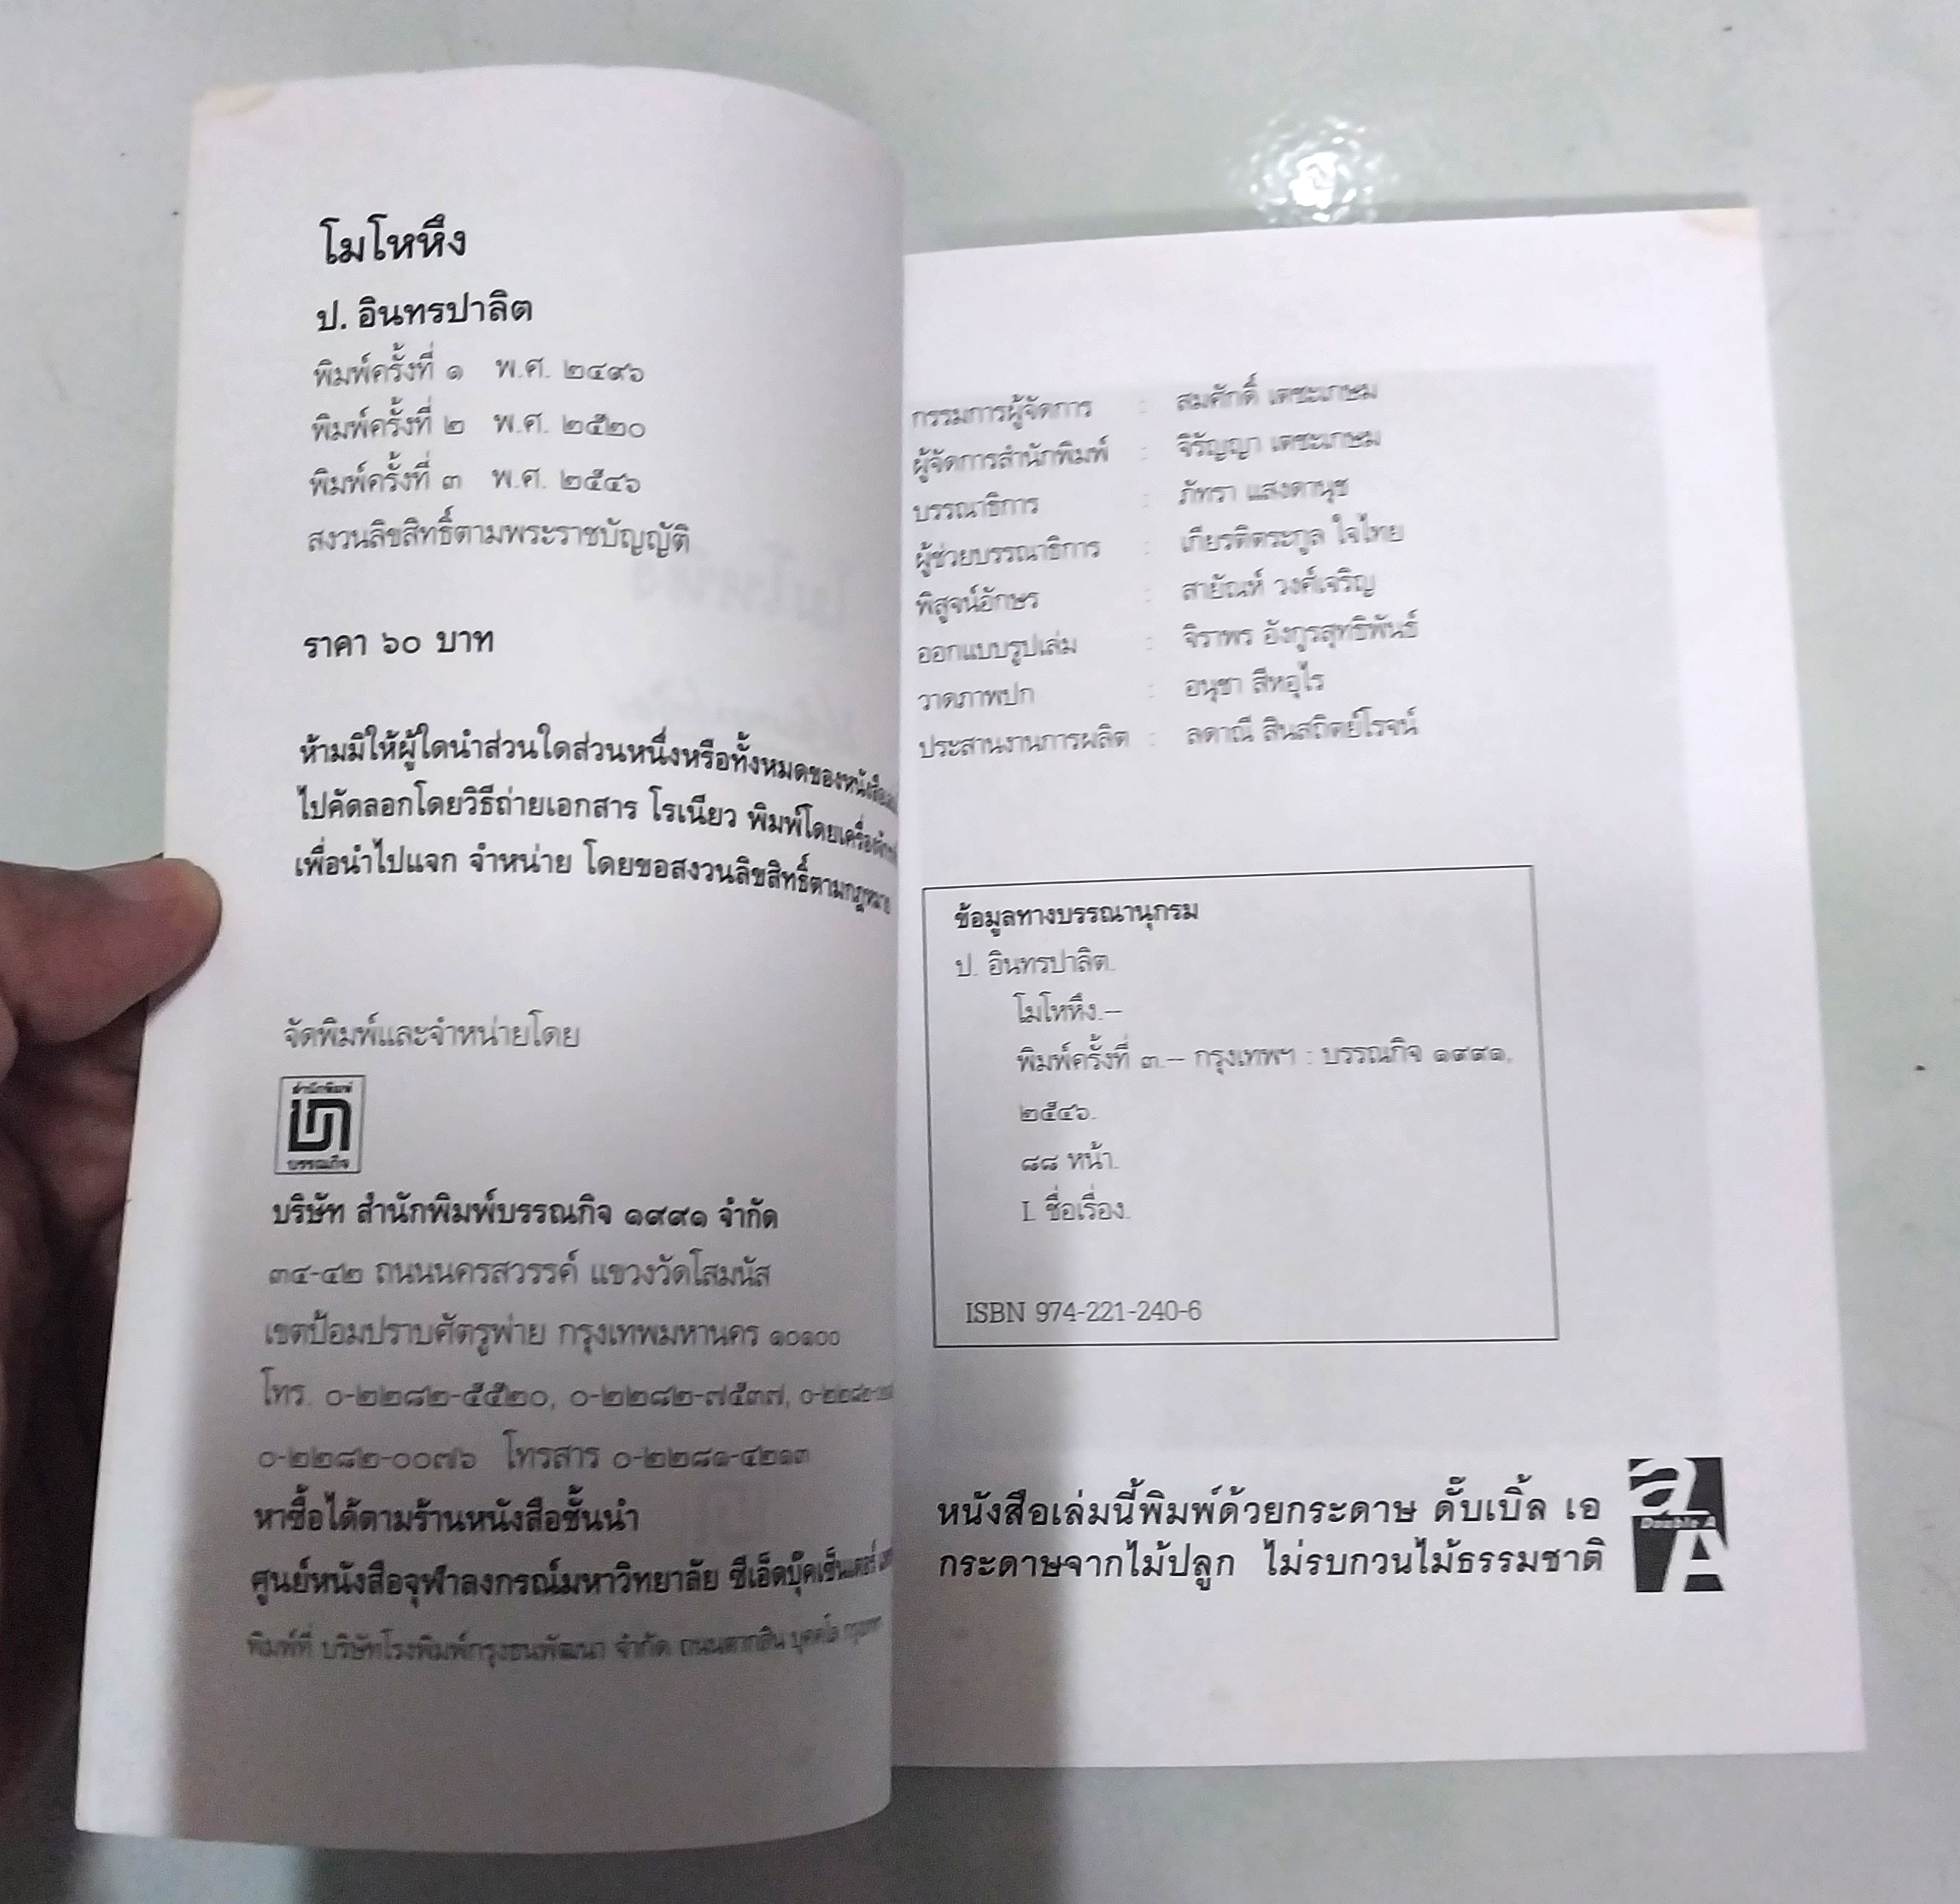 โมโหหึง
ป. อินทรปาลิต
พิมพ์ครั้งที่ ๑ พ.ศ. ๒๔๙๖
พิมพ์ครั้งที่ ๒ พ.ศ. ๒๕๒๐
พิมพ์ครั้งที่ ๓ พ.ศ. ๒๕๔๖
สงวนลิขสิทธิ์ตามพระราชบัญญัติ
ราคา ๖๐ บาท
ห้ามมิให้ผู้ใดนำส่วนใดส่วนหนึ่งหรือทั้งหมดของหนังสือ
ไปคัดลอกโดยวิธีถ่ายเอกสาร โรเนียว พิมพ์โดยเครื่อง
เพื่อนำไปแจก จำหน่าย โดยขอสงวนลิขสิทธิ์ตามกฎหมาย
จัดพิมพ์และจำหน่ายโดย
สำนักพิมพ์
บรรณกิจ
บริษัท สำนักพิมพ์บรรณกิจ ๑๙๙๑ จำกัด
๓๔-๔๒ ถนนนครสวรรค์ แขวงวัดโสมนัส
เขตป้อมปราบศัตรูพ่าย กรุงเทพมหานคร ๑๐๑๐๐
โทร. ๐-๒๒๘๒-๕๕๒๐, ๐-๒๒๘๒-๗๕๓๗,
๐-๒๒๘๒-๐๐๗๖ โทรสาร ๐-๒๒๘๑-๔๒๑๓
หาซื้อได้ตามร้านหนังสือชั้นนำ
ศูนย์หนังสือจุฬาลงกรณ์มหาวิทยาลัย ซีเอ็ดบุ๊คเซ็นเตอร์
พิมพ์ที่ บริษัทโรงพิมพ์กรุงธนพัฒนา จำกัด ถนนตากสิน บุคคโล
กรรมการผู้จัดการ : สมศักดิ์ เตชะเกษม
ผู้จัดการสำนักพิมพ์ : จิรัญญา เตชะเกษม
บรรณาธิการ : ภัทรา แสงดานุช
ผู้ช่วยบรรณาธิการ : เกียรติตระกูล ใจไทย
พิสูจน์อักษร : สายัณห์ วงศ์เจริญ
ออกแบบรูปเล่ม : จิราพร อังกูรสุทธิพันธ์
วาดภาพปก : อนุชา สีหอุไร
ประสานงานการผลิต : ลดาณี สินสถิตย์โรจน์
ข้อมูลทางบรรณานุกรม
ป. อินทรปาลิต.
โมโหหึง.–
พิมพ์ครั้งที่ ๓.– กรุงเทพฯ : บรรณกิจ ๑๙๙๑,
๒๕๔๖.
๘๘ หน้า.
I. ชื่อเรื่อง.
ISBN 974-221-240-6
หนังสือเล่มนี้พิมพ์ด้วยกระดาษ ดั๊บเบิ้ล เอ
กระดาษจากไม้ปลูก ไม่รบกวนไม้ธรรมชาติ
a
Double A
A